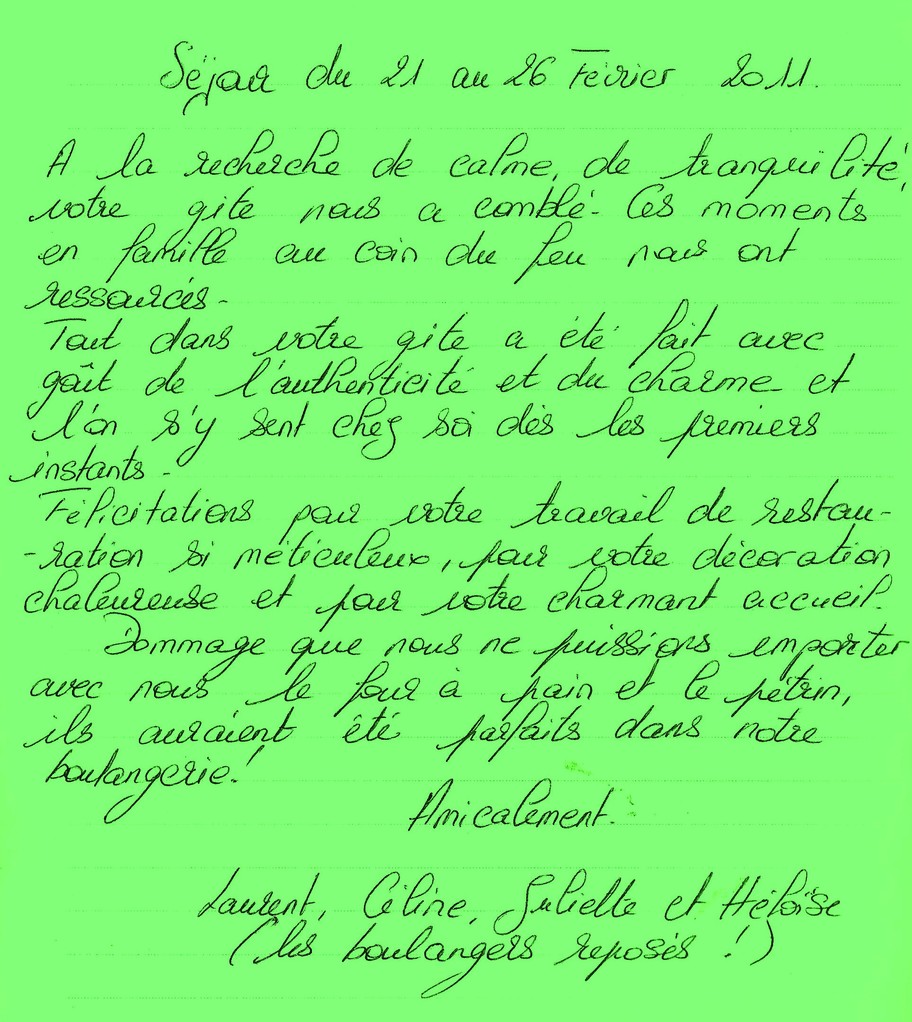 Séjour du 21 au 26 Février 2011.
A la recherche de calme, de tranquilité,
votre gite nous a comblé. Ces moments
en famille au coin du feu nous ont
ressourcés.
Tout dans votre gite a été fait avec
goût de l'authenticité et du charme et
l'on s'y sent chez soi dès les premiers
instants.
Félicitations pour votre travail de restau-
-ration si méticuleux, pour votre décoration
chaleureuse et pour votre charmant accueil.
Dommage que nous ne puissions emporter
avec nous le four à pain et le pétrin,
ils auraient été parfaits dans notre
boulangerie!
Amicalement.
Laurent, Céline, Juliette et Héloïse
(les boulangers reposés !)